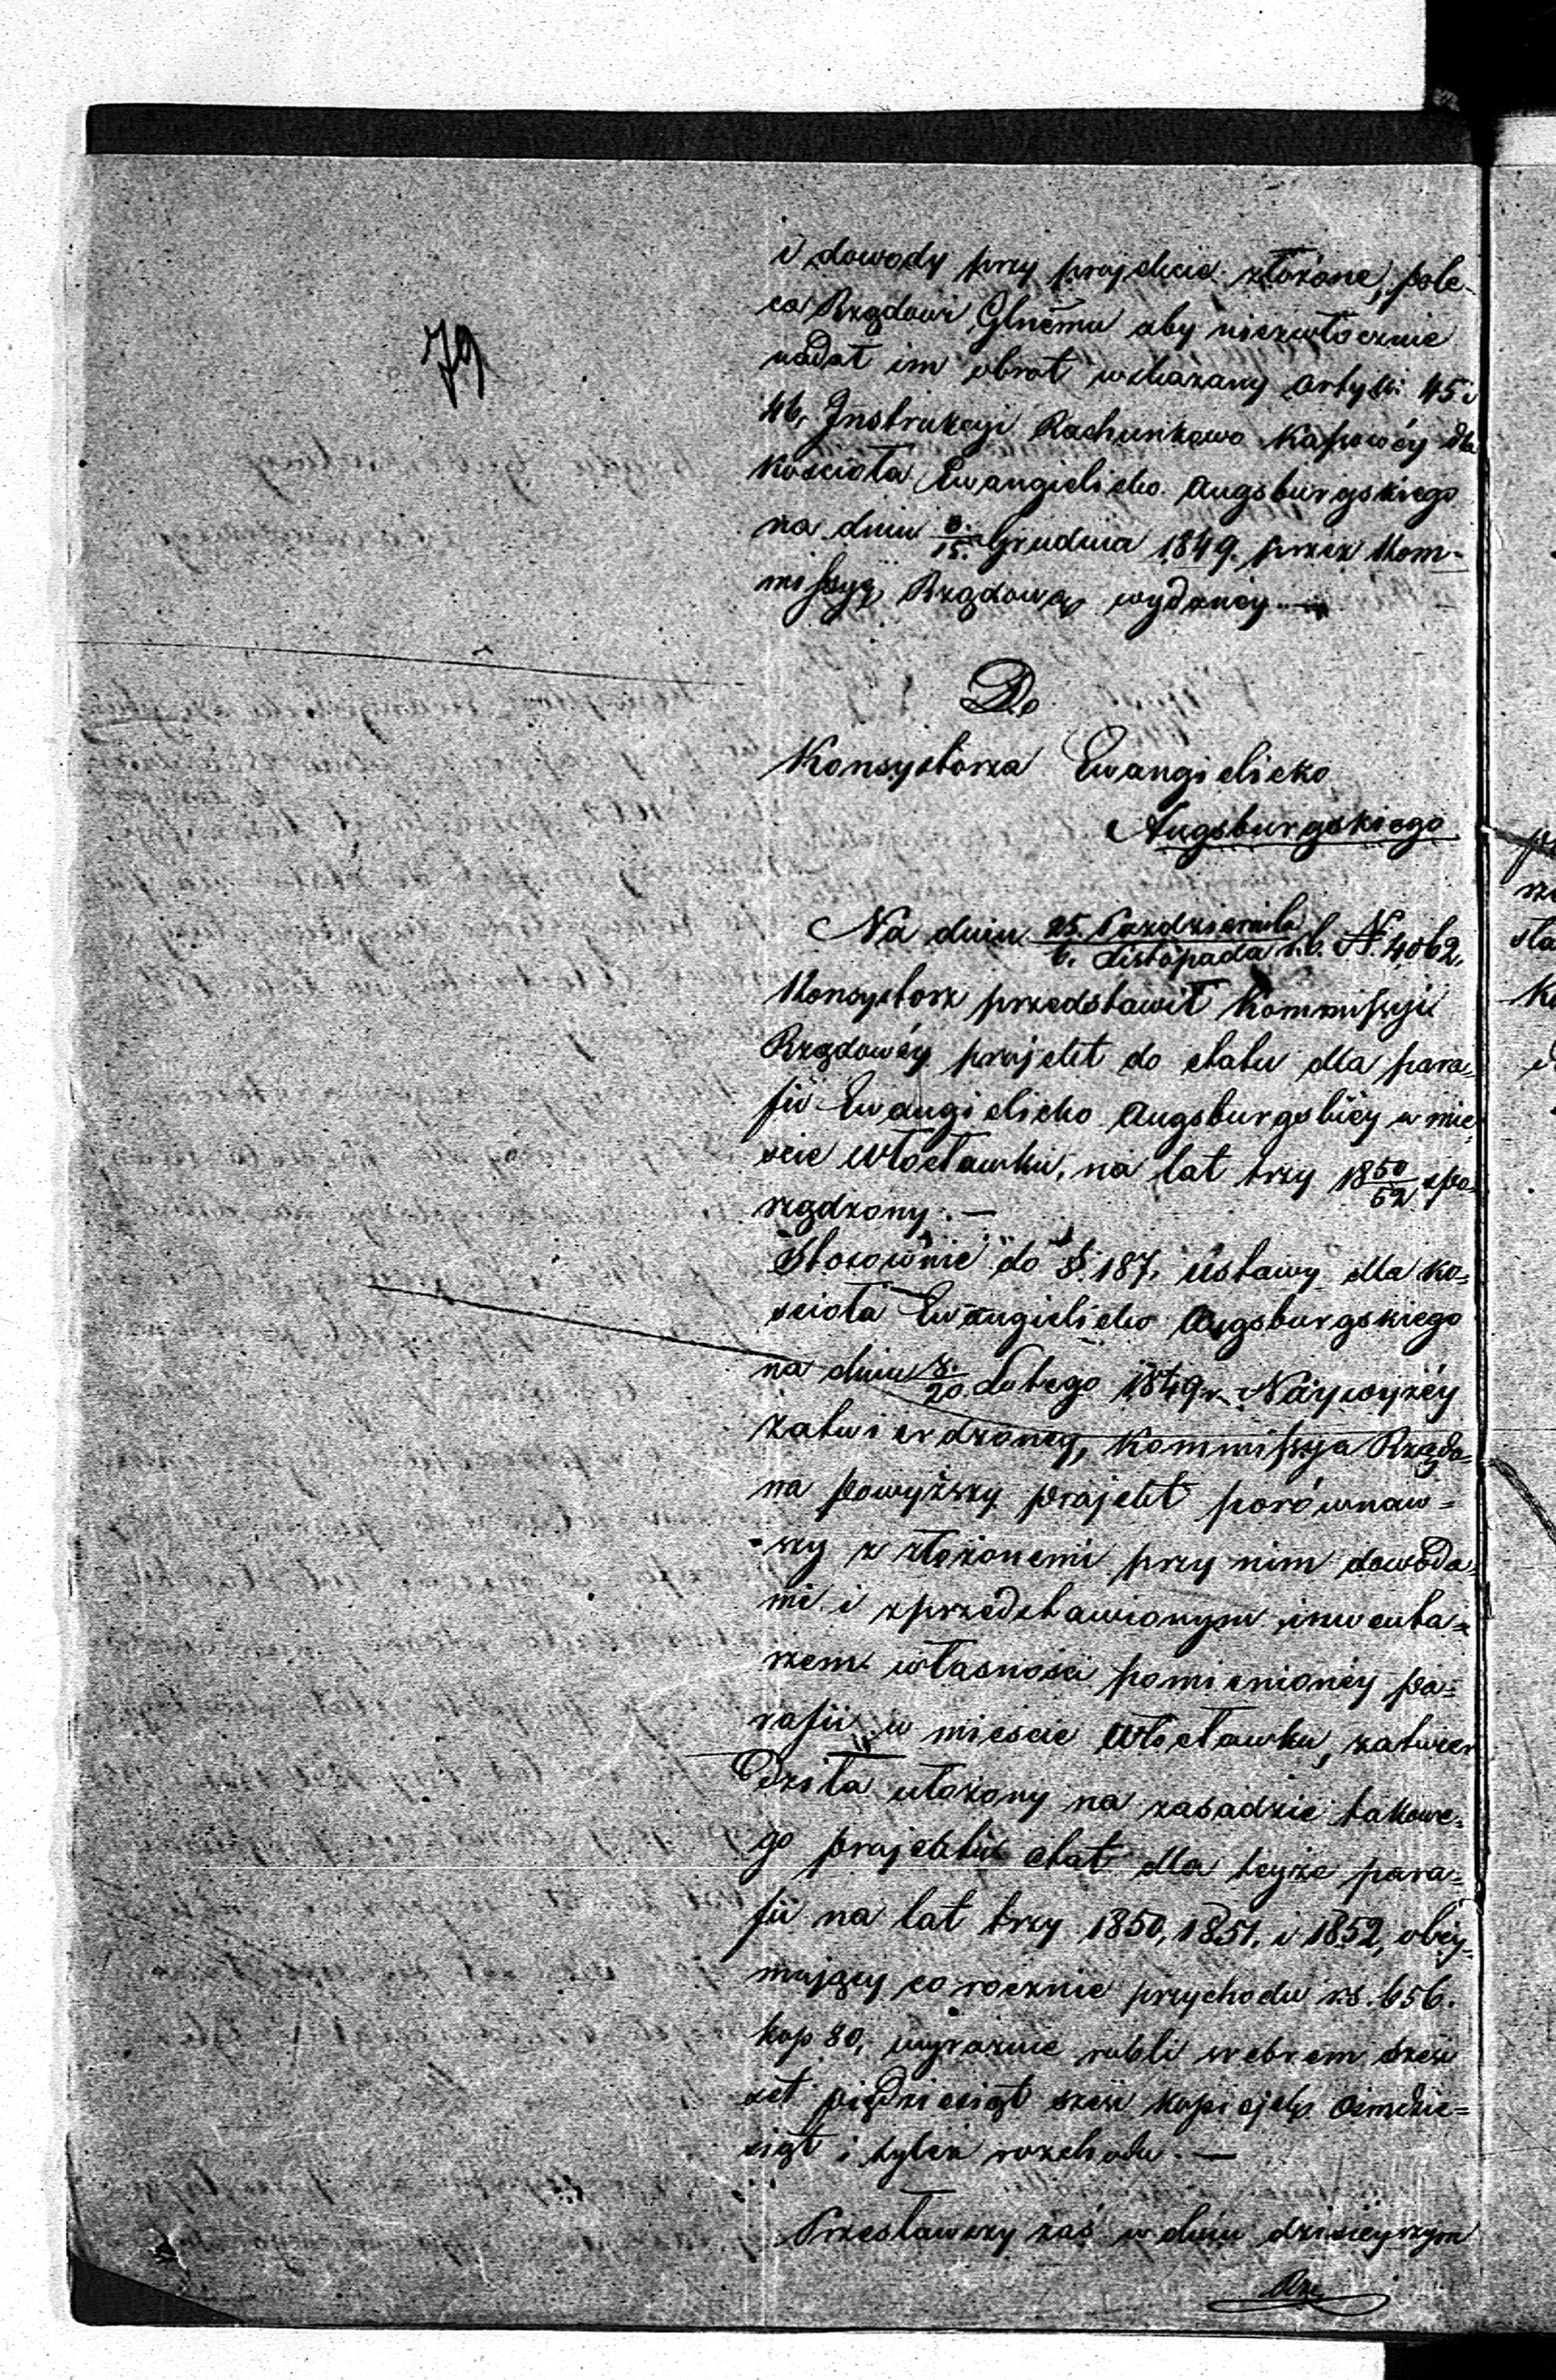 79
i dowody przy projekcie złożone, pole-
ca Rządowi Glnemu aby niezwłocznie
nadał im obrot wskazany artyk: 45 i
46, Instrukcyi Rachunkowo Kassowéy dla
Kościoła Ewangielicko Augsburgskiego
na dniu 3./15. Grudnia 1849. przez Kom-
missyą Rządową wydanéy. —
Do
Konsystorza Ewangielicko
Augsburgskiego
Na dniu 25. Października/6. Listopada r.b. N. 4062,
Konsystorz przedstawił Kommissyi
Rządowéy projekt do etatu dla para-
fii Ewangielicko Augsburgskiéy w mie-
scie Włocławku, na lat trzy 1850/52 spo-
rządzony. —
Stosownie do §. 187, Ustawy dla ko-
scioła Ewangielicko Augsburgskiego
na dniu 8./20 Lutego 1849 r. Naywyżéy
zatwierdzonéy, Kommissya Rządo-
na powyższy projekt porównaw=
szy z złożonemi przy nim dowoda-
mi i zprzedstawionym inwenta=
rzem własności pomienionéy pa=
rafii w miescie Włocławku, zatwier
dziła ułożony na zasadzie takowe-
go projektu etat dla teyże para-
fii na lat trzy 1850, 1851, i 1852, obéy-
mujący corocznie przychodu rs. 656.
kop 80, wyraznie rubli srebrem szesc
set pięćdziesiąt szesc kopiejek osmdzie=
siąt i tyleż rozchodu. —
Przesławszy zaś w dniu dzisiéyszym
Rzą